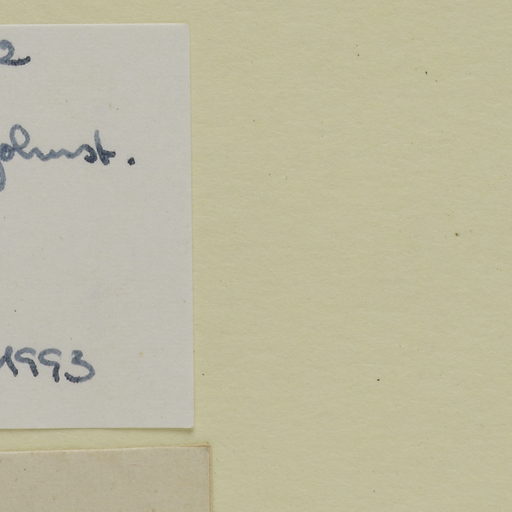 2
johnst.
1993